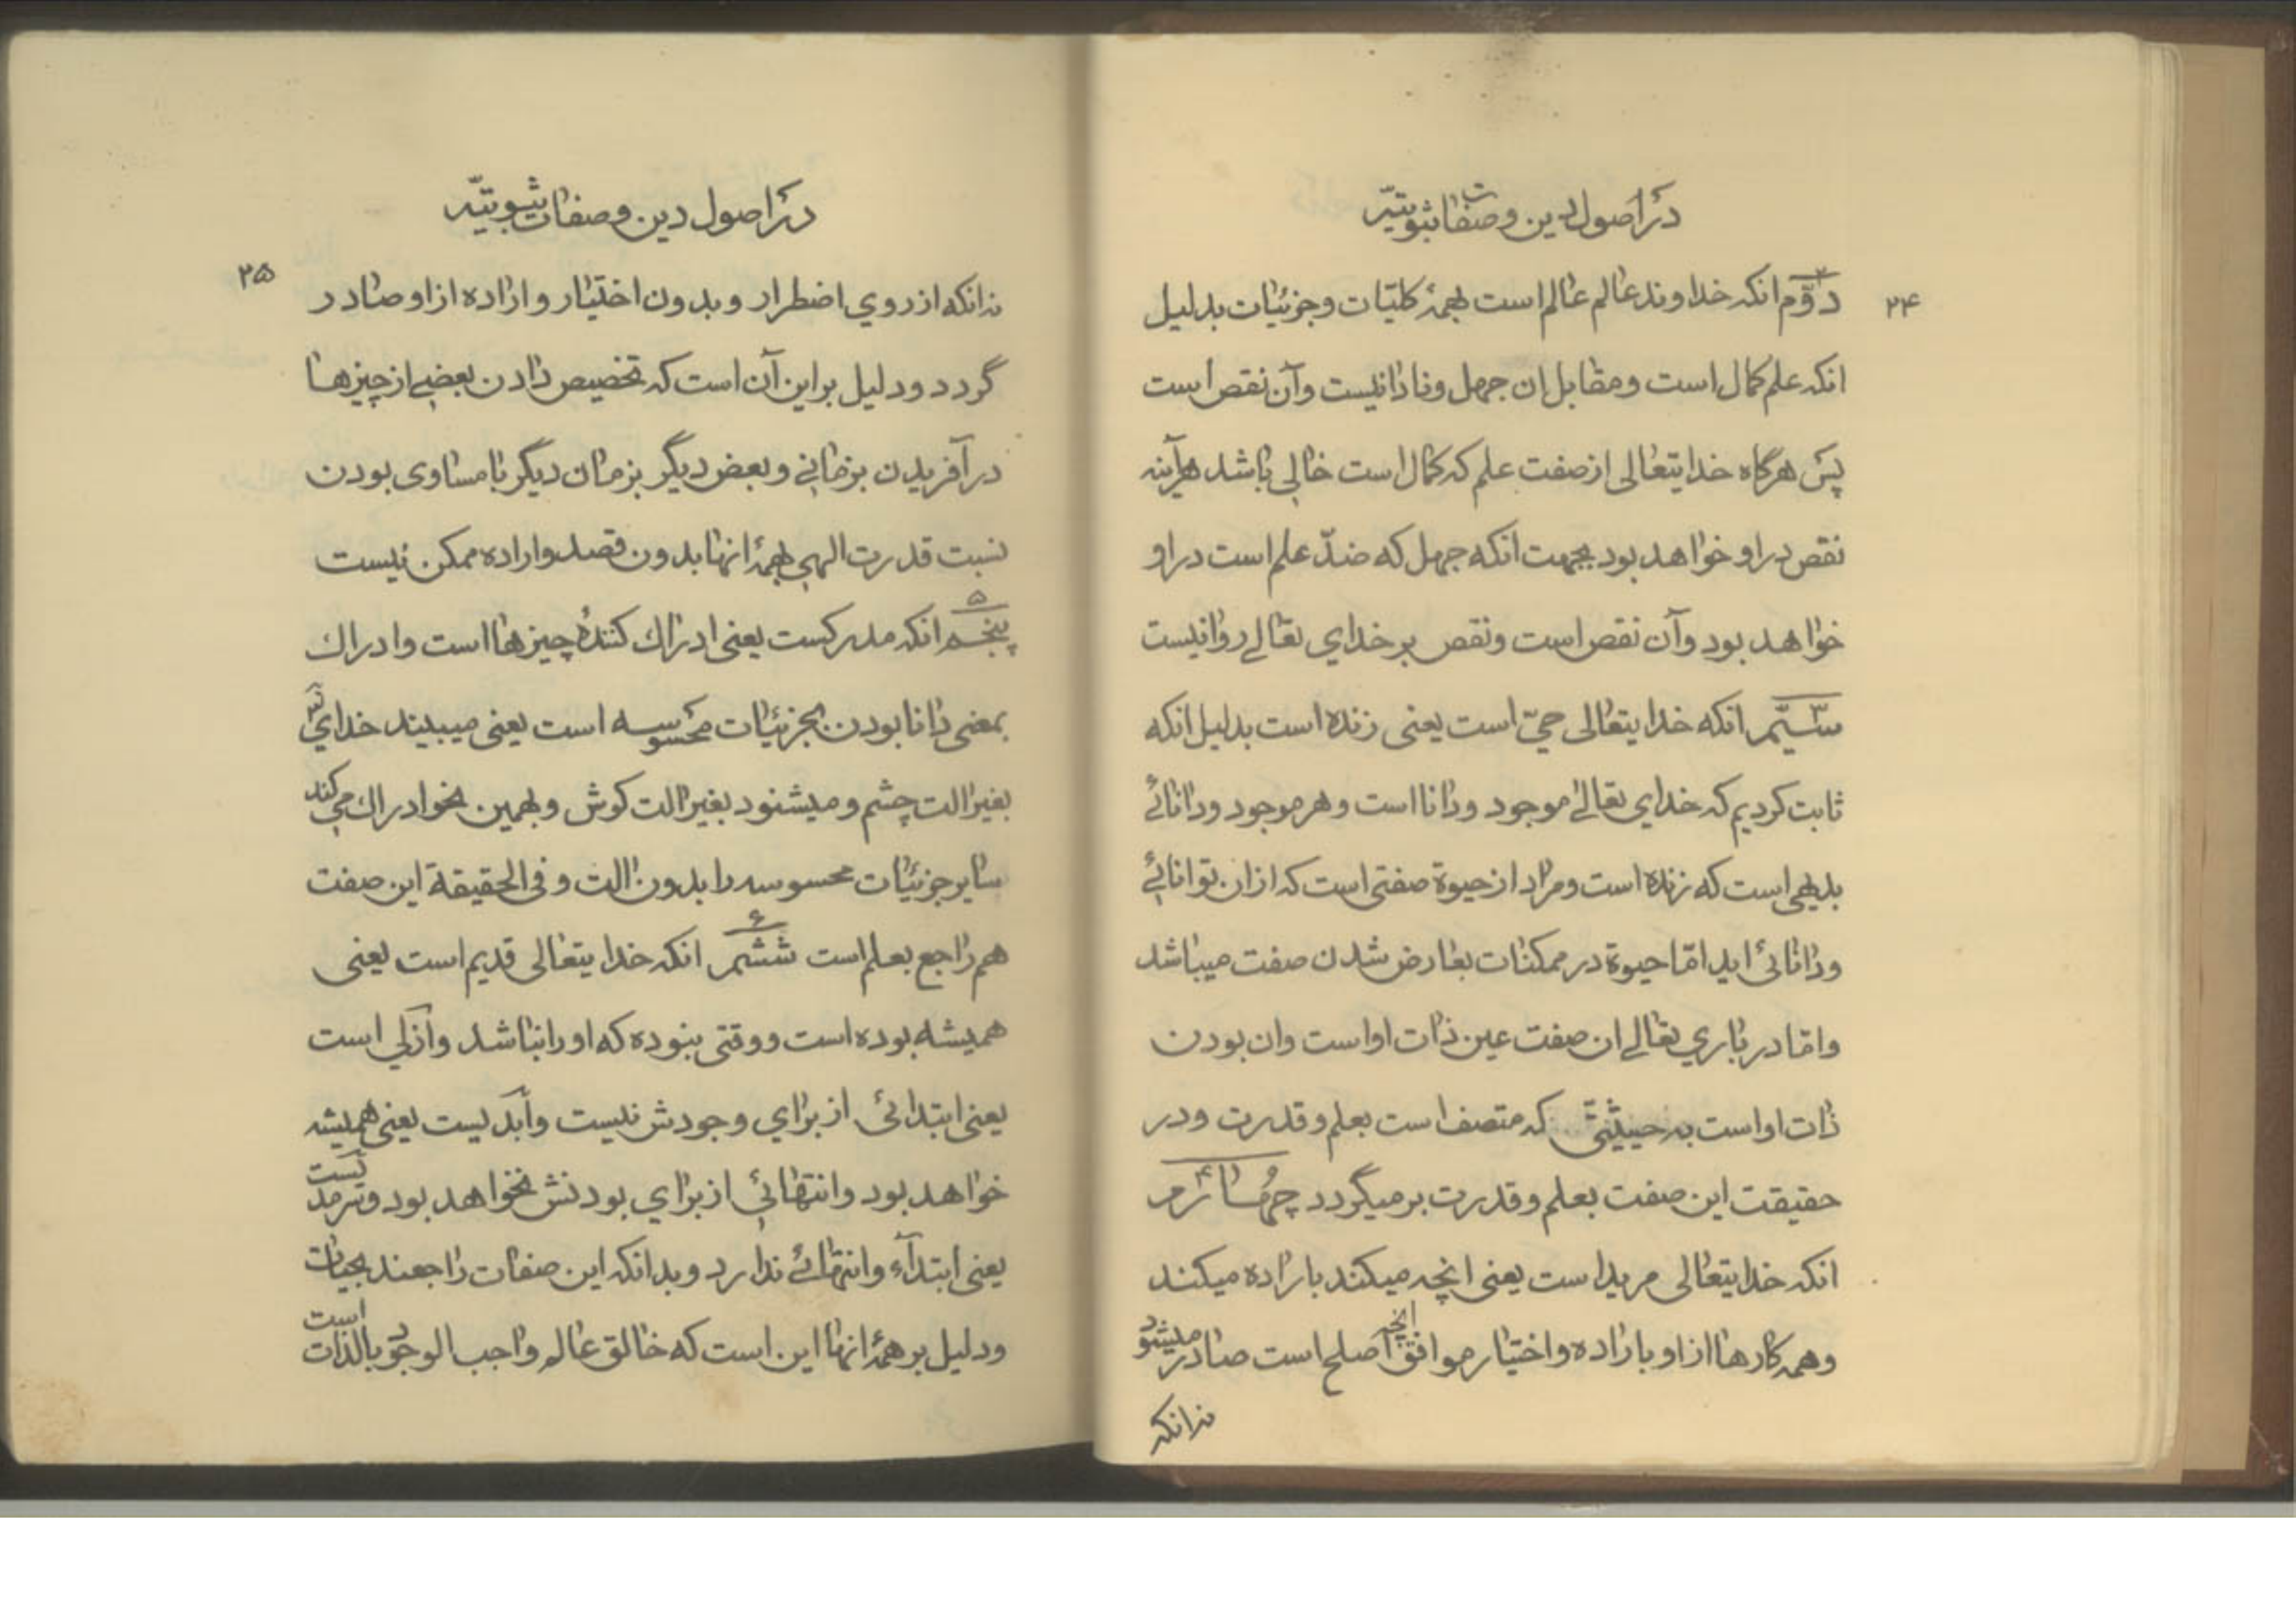 در اصول دین و صفات ثبوتیّه
۲۴
دوّم انکه خداوند عالم عالم است بهمهٔ کلیّات و جزئیات بدلیل
انکه علم کمال است و مقابل ان جهل و نادانیست و آن نقص است
پس هرگاه خدایتعالی از صفت علم که کمال است خالی باشد هرآینه
نقص در او خواهد بود بجهت انکه جهل که ضدّ علم است در او
خواهد بود و آن نقص است و نقص بر خدای تعالی روا نیست
سیّم انکه خدایتعالی حیّ است یعنی زنده است بدلیل انکه
ثابت کردیم که خدای تعالی موجود و دانا است و هر موجود و دانائی
بدیهی است که زنده است و مراد از حیوة صفتی است که از ان توانائی
و دانائی اید امّا حیوة در ممکنات بعارض شدن صفت میباشد
و امّا در باری تعالی ان صفت عین ذات او است و ان بودن
ذات او است به حیثیّتی که متصف است بعلم و قدرت و در
حقیقت این صفت بعلم و قدرت برمیگردد چهارم
انکه خدایتعالی مرید است یعنی انچه میکند باراده میکند
و همه کارها از او باراده و اختیار موافق انچه اصلح است صادر میشود
نه انکه
در اصول دین و صفات ثبوتیّه
۲۵
نه انکه از روی اضطرار و بدون اختیار و اراده از او صادر
گردد و دلیل بر این آن است که تخصیص دادن بعضی از چیزها
در آفریدن بزمانی و بعض دیگر بزمان دیگر با مساوی بودن
نسبت قدرت الهی بهمهٔ انها بدون قصد و اراده ممکن نیست
۵
پنجم انکه مدرکست یعنی ادراک کنندهٔ چیزها است و ادراک
بمعنی دانا بودن بجزئیات محسوسه است یعنی میبیند خدای تع
بغیر الت چشم و میشنود بغیر الت کوش و بهمین نحو ادراک می کند
سایر جزئیات محسوسه را بدون الت و فی الحقیقة این صفت
۶
هم راجع بعلم است ششم انکه خدایتعالی قدیم است یعنی
همیشه بوده است و وقتی نبوده که او را نباشد و ازلی است
یعنی ابتدائی از برای وجودش نیست و ابدیست یعنی همیشه
خواهد بود و انتهائی از برای بودنش نخواهد بود و سرمدیست
یعنی ابتدآء و انتهائی ندارد و بدانکه این صفات راجعند بحیات
و دلیل بر همهٔ انها این است که خالق عالم واجب الوجود بالذات است